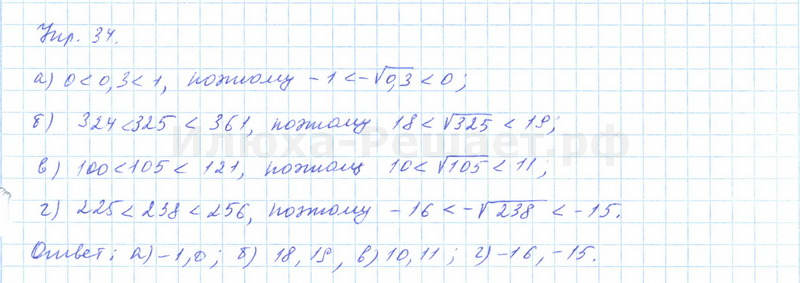 Упр. 34.
а) 0 < 0,3 < 1, поэтому -1 < -√0,3 < 0;
б) 324 < 325 < 361, поэтому 18 < √325 < 19;
Илюха-Решает.рф
в) 100 < 105 < 121, поэтому 10 < √105 < 11;
г) 225 < 238 < 256, поэтому -16 < -√238 < -15.
Ответ: а) -1, 0; б) 18, 19, в) 10, 11; г) -16, -15.